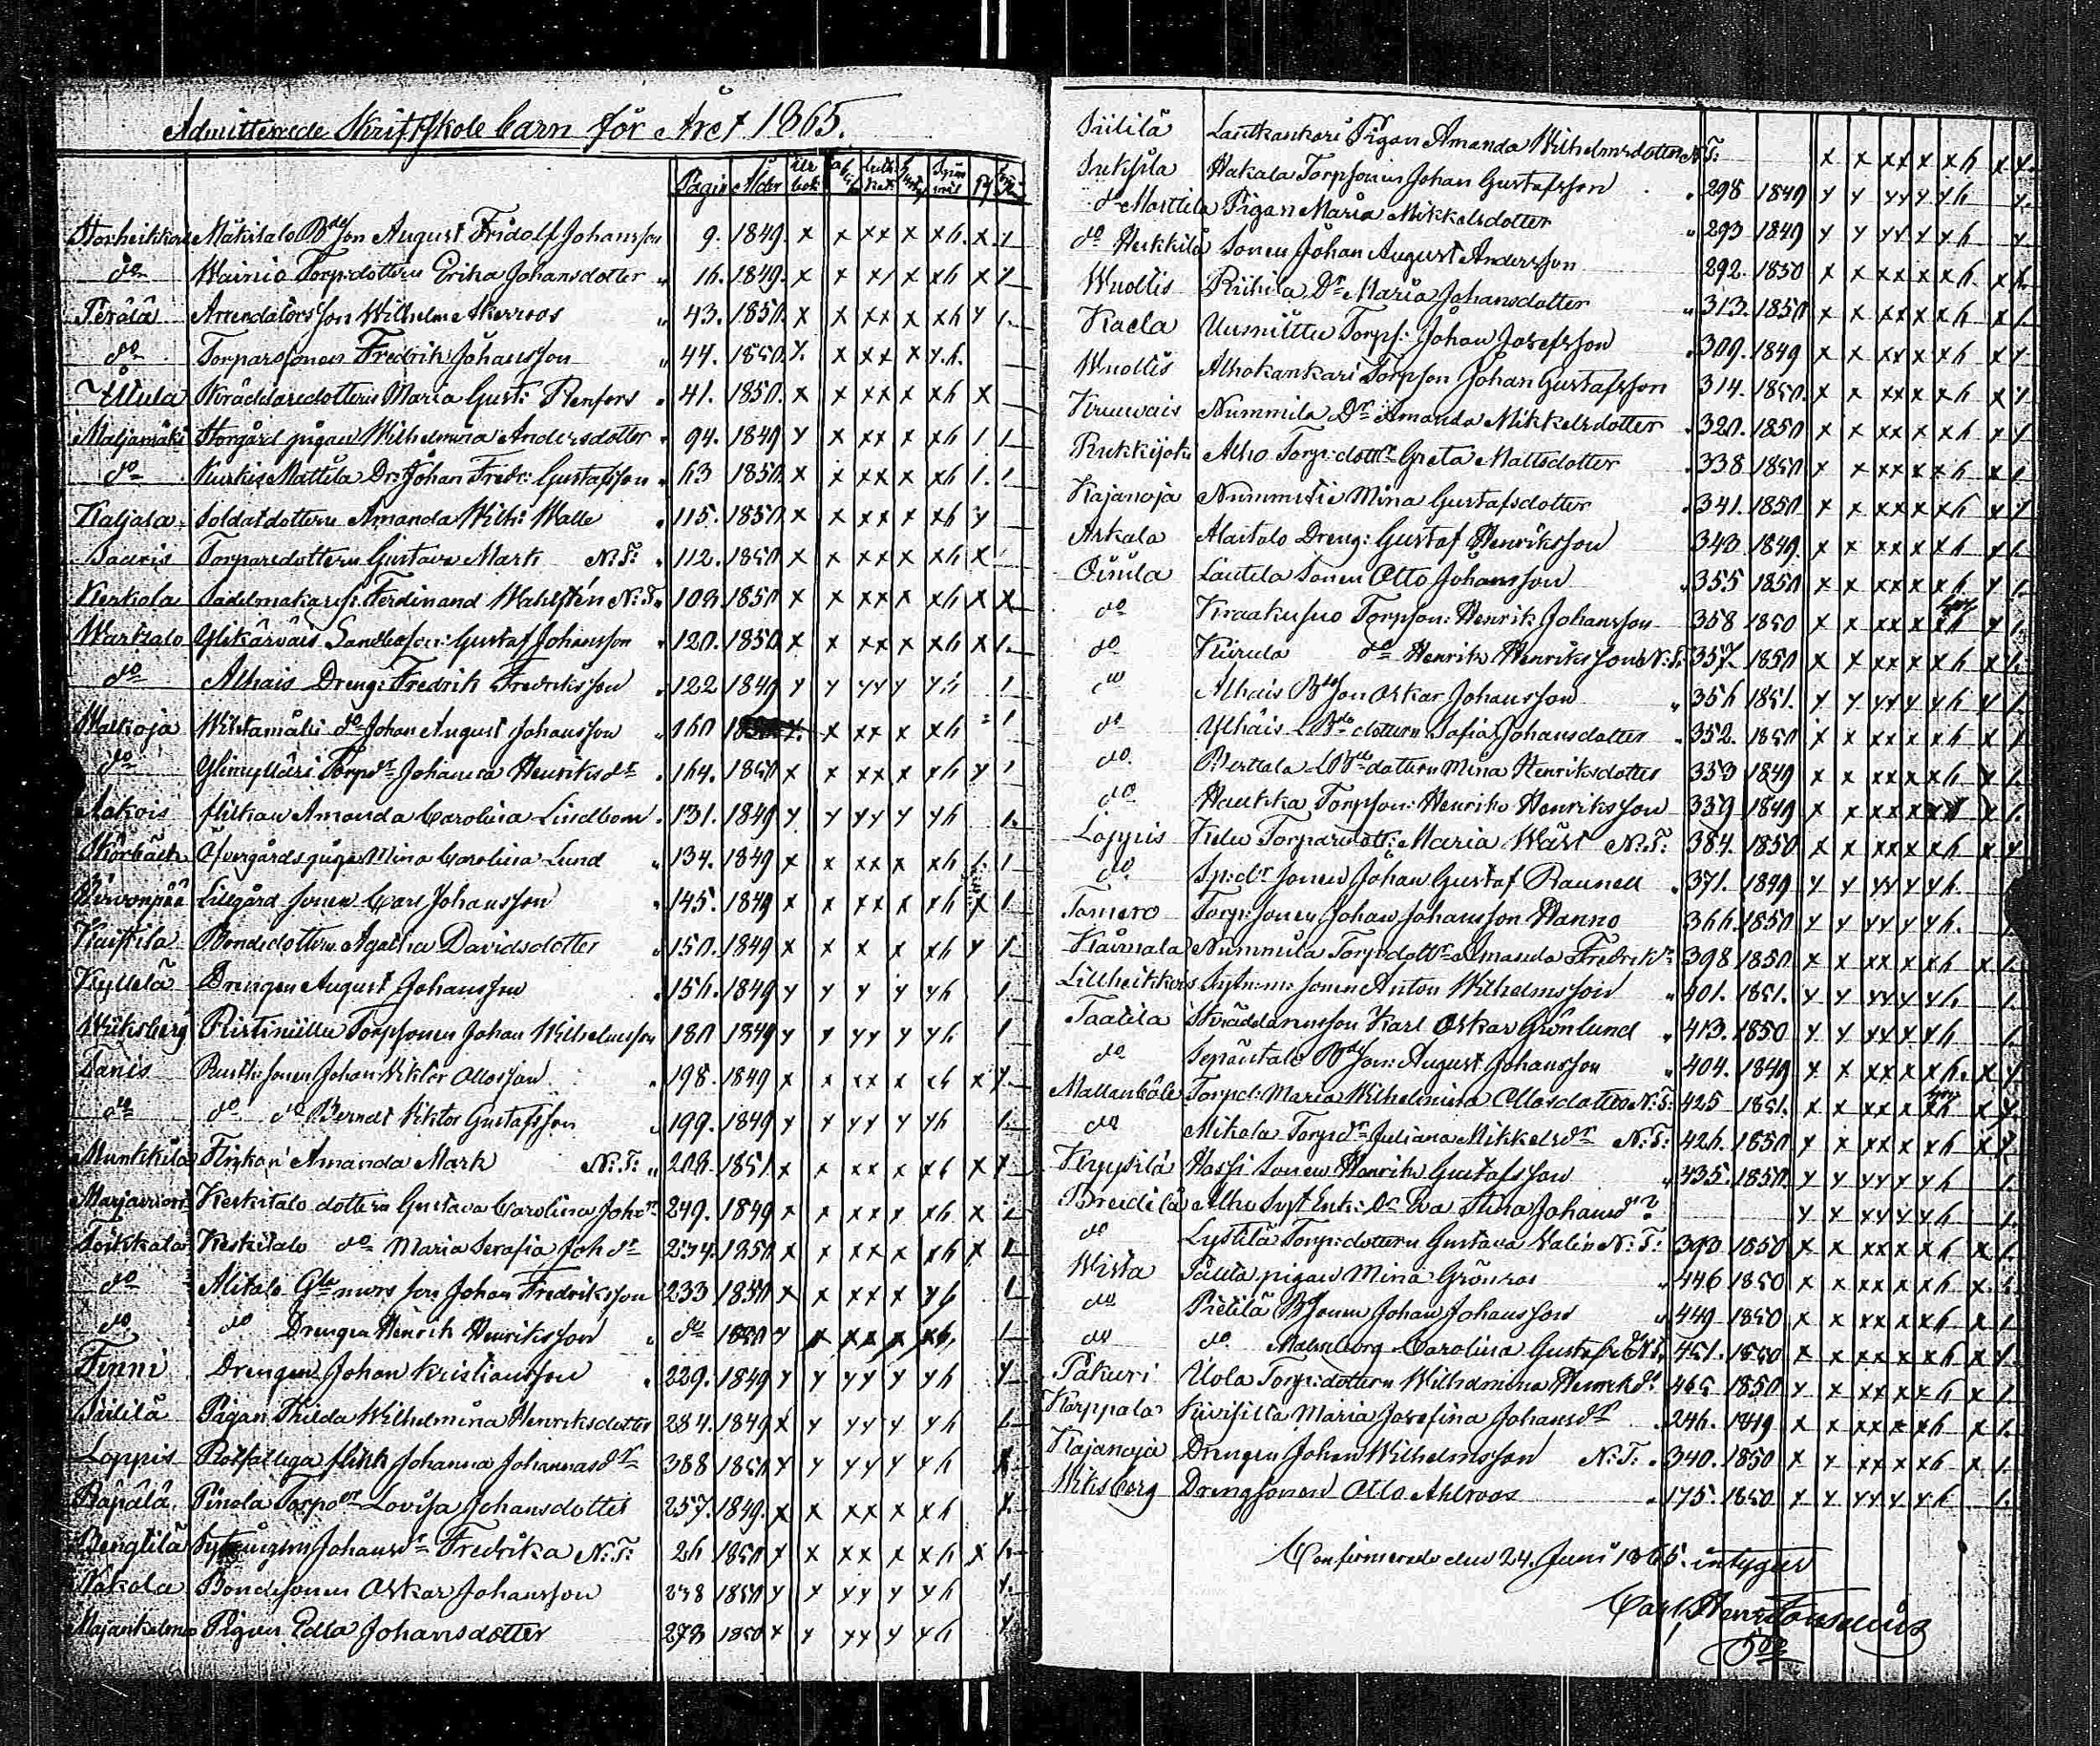 Admitterade Skriftskole barn för Året 1865.
Pagin Ålder
Storheikkilä Mäkitalo Bdeson August Fridolf Johansson 9. 1849. x x xx x xh. x 1
do Wainio Torp:dottern Erika Johansdotter 16. 1849. x x x/ x xh x 1.
Perälä Arrendators son Wilhelm Åkerroos 43. 1850. x x xx x xh y 1.
do Torparesonen Fredrik Johansson 44. 1850. y. x xx x y.h.
Uotila Skräddaredottern Maria Gust: Renfors 41. 1850. x x xx x xh x
Maljamäki Storgård pigan Wilhelmina Andersdotter 94. 1849 y x xx x xh 1 1.
do Kurkis Mattila Dr: Johan Fredr: Gustafsson 63 1850. x x xx x xh 1. 1.
Kaljala Soldatdottern Amanda Wilh: Walle 115. 1850 x x xx x xh y
Sauris Torparedottern Gustava Mark N:T: 112. 1850 x x xx x xh x
Kerkola Sadelmakares: Ferdinand Wahlstén N:T. 103. 1850 x x xx x xh x x
Wartsalo Ylikärväis Landboson: Gustaf Johansson 120. 1850. x x xx x xh x 1.
do Alhais Dreng: Fredrik Fredriksson 122 1849 y y yy y yh 1
Walkoja Wiktamäki do Johan August Johansson 160 x xx x xh 1
do Ylimylläri Torpdr Johanna Henriksdr 164. 1850 x x xx x xh y 1
Aakois flickan Amanda Carolina Lindbom 131. 1849 y y yy y yh 1.
Skörbäck Öfvergårds pigan Mina Carolina Lund 134. 1849 x x xx x xh 1. 1
Lillgård sonen Carl Johansson 145. 1849 x x xx x xh x 1.
Bondedottern Agatha Davidsdotter 150. 1849 x x x x xh y 1.
Kyllelä Drengen August Johansson 156. 1849 y y y y yh 1
Wiksberg Ristimilla Torpsonen Johan Wilhelmsson 180 1849 y y yy y yh 1
Tanis Rusth: sonen Johan Viktor Ottosson 198. 1849 x x xx x xh x y.
do do do Berndt Viktor Gustafsson 199. 1849 y y yy y yh 1.
Munkkila Flickan Amanda Mark N:T: 208. 1851. x x xx x xh x x
Keskitalo dottern Gustava Carolina Joh:dr 249. 1849 x x xx x xh x 1
Toikkala Keskitalo do Maria Serafia Joh dr 234. 1850 x x xx x xh x 1.
do Alitalo Gle mors son Johan Fredriksson 233 1850 x x xx x yh 1
do do Drengen Henrik Henriksson do 1850 y x xx x xh, 1
Finni Drengen Johan Kristiansson 229. 1849 y y yy y yh y
Siililä Pigan Thilda Wilhelmina Henriksdotter 284. 1849 x y yy y yh 1.
Loppis Rotfattiga flick Johanna Johannasdr 388 1850 y y yy y yh x
Räpälä Pinola Torpdr Lovisa Johansdotter 257. 1849. x x xx x xh y.
Bengtilä Johansdr Fredrika N:T: 26 1850 x x xx x xh x 1.
Nakola Bondesonen Oskar Johansson 238 1850 y y yy y yh y.
Majankelmo Pigan Edla Johansdotter 273 1850 x y yy y yh y
Siililä Lautkankari Pigan Amanda Wilhelmsdotter N:T: x x xx x xh x x.
Suksila Hakala Torpsonen Johan Gustafsson 298 1849 y y yy y yh y.
do Marttila Pigan Maria Mikkelsdotter 293 1849 y y yy y yh y
do Heikkilä Sonen Johan August Andersson 292. 1850 x x xx x xh x x.
Wuoltis Riihilä Dr Maria Johansdotter 313. 1850 x x xx x xh x 1.
Kaela Uumittu Torps: Johan Josefsson 309. 1849 x x xx x xh x y
Wuoltis Alhokankari Torpson Johan Gustafsson 314. 1850. x x xx x xh x y
Kruuvais Nummila Dr Amanda Mikkelsdotter 320. 1850 x x xx x xh x y
Rukkijoki Alho Torp:dottr Greta Mattsdotter 338 1850 x x xx x xh x 1
Kajanoja Nummitie Mina Gustafsdotter 341. 1850 x x xx x xh x y
Askala Alaitalo Dreng: Gustaf Henriksson 343 1849. x x xx x xh x 1.
Oinila Lautila Sonen Otto Johansson 355 1850 x x xx x xh y 1.
do Kraakusuo Torpson: Henrik Johansson 358 1850 x x xx x xh y 1.
do Kiirula do Henrik Henriksson N:T: 357. 1850 x x xx x xh x 1.
do Alhais Bdeson Oskar Johansson 356 1851. y y yy y yh y 1
do Ylhäis Bde dottern Sofia Johansdotter 352. 1850 x x xx x xh x 1
do. Perttala Bde dottern Mina Henriksdotter 353 1849 x x xx x xh x 1.
do Haukka Torpson: Henrik Henriksson 359 1849 x x xx x y 1.
Loppis Torparedott: Maria Wäst N:T: 384. 1850 x x xx x xh x y
do Sonen Johan Gustaf Raunell 371. 1849 y y yy y yh.
Tomero Torp: sonen Johan Johansson Hanno 366. 1850 y y yy y yh.
Kaunala Nummila Torpdottr Amanda Fredrikdr 398 1850 x x xx x xh x 1.
Lillheikkilä sonen Anton Wilhelmsson 401. 1851. y y yy y yh 1.
Taatila Skräddaresson Karl Oskar Grönlund 413. 1850 y y yy y yh 1.
do Sepäntalo Bdeson: August Johansson 404. 1849 y x xx x xh. x y.
Mattanböle Torpd: Maria Wilhelmina Ottosdotter N:T: 425 1851. x x xx x xh x y.
do Mikola Torpdr Juliana Mikkelsdr N:T: 426. 1850 y x xx x yh x y
Kyysilä Hassi Sonen Henrik Gustafsson 435. 1850. y y yy y yh 1.
Breidilä Eva Stina Johansdr ? y y yy y yh 1.
do Lystilä Torp:dottern Gustava Valin N:T: 393 1850 x x xx x xh x 1.
Wista pigan Mina Grönroos 446 1850 x x xx x xh x 1.
do Pietilä Bsonen Johan Johansson 449 1850 x x xx x xh x 1.
do do. Malmberg Carolina 451. 1850 x x xx x xh x y.
Påkuri Uola Torp:dottern Wilhelmina Henrikdr 465 1850 y x xx x xh x 1.
Karppala Kivisilla Maria Josefina Johansdr 246. 1849 x x xx x xh x 1.
Kajanoja Drengen Johan Wilhelmsson N:T: 340. 1850 x y xx x xh x 1.
Wiksberg Drengsonen Otto Ahlroos 175. 1850 y y yy y yh 1.
Confirmerade den 24. Juni 1865. intygar
Carl Henr.